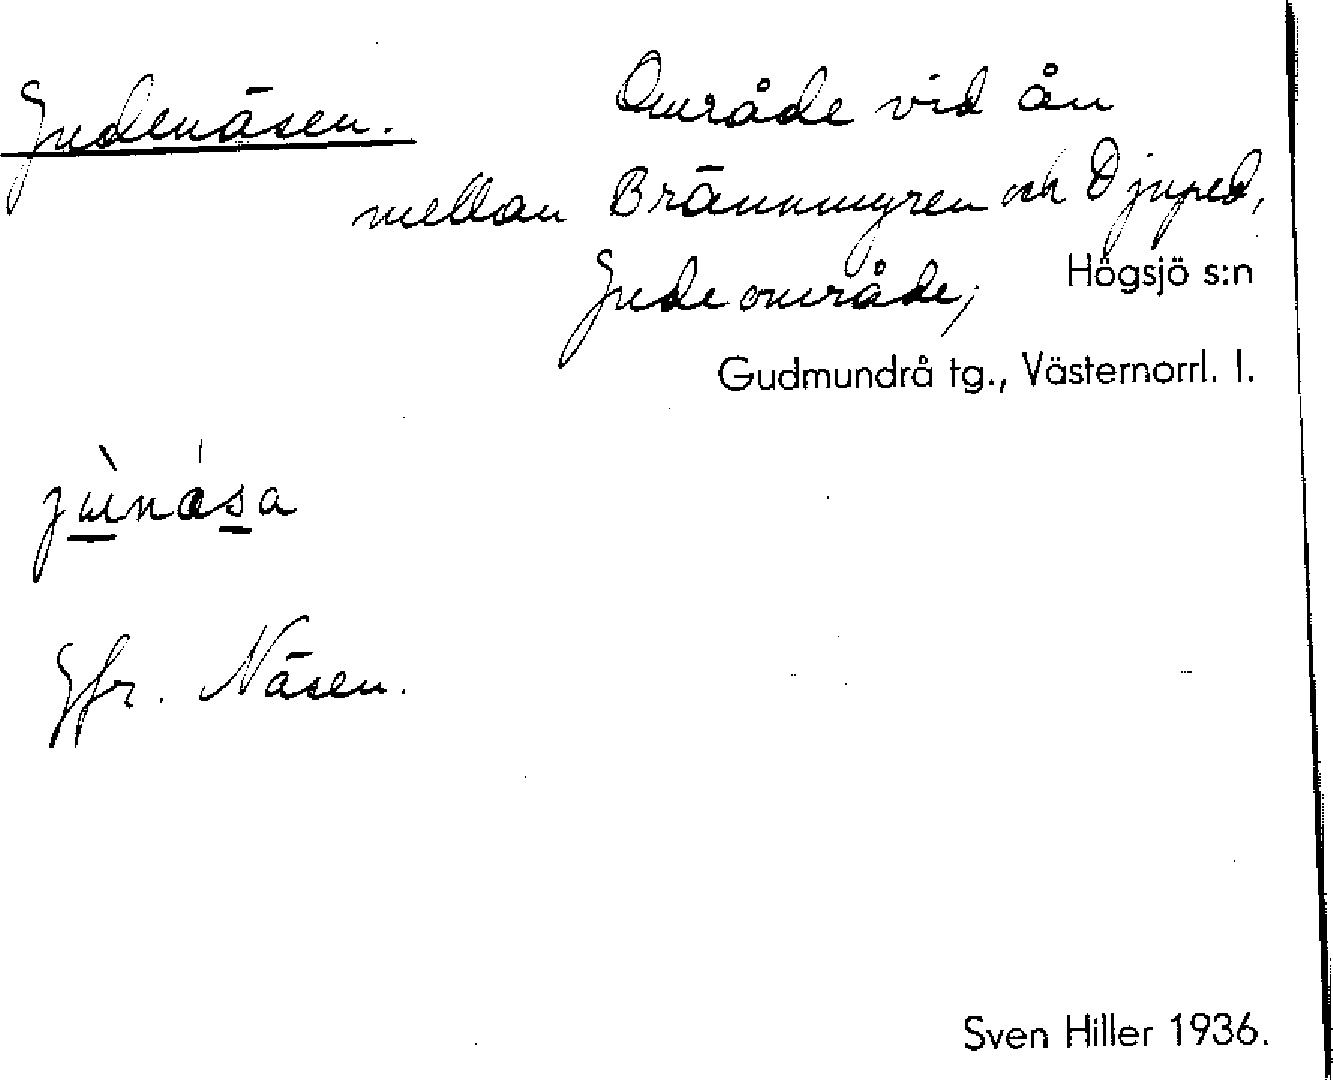 Judenäsen. Område vid ån
mellan Brännmyren och Djuped,
Judeområde; Högsjö s:n
Gudmundrå tg., Västernorrl. l.
Jfr. Näsen.
Sven Hiller 1936.